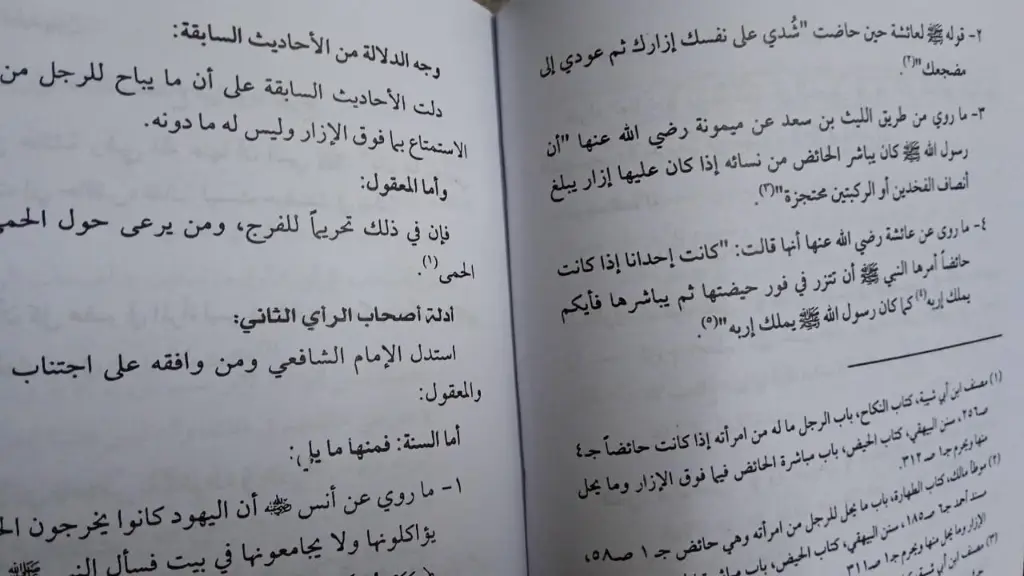 ٢- قوله ﷺ لعائشة حين حاضت "شُدي على نفسك إزارك ثم عودي إلى
مضجعك"(٢).
٣- ما روي من طريق الليث بن سعد عن ميمونة رضي الله عنها "أن
رسول الله ﷺ كان يباشر الحائض من نسائه إذا كان عليها إزار يبلغ
أنصاف الفخدين أو الركبتين محتجزة"(٣).
٤- ما روى عن عائشة رضي الله عنها أنها قالت: "كانت إحدانا إذا كانت
حائضاً أمرها النبي ﷺ أن تتزر في فور حيضتها ثم يباشرها فأيكم
يملك إربه(٤) كما كان رسول الله ﷺ يملك إربه"(٥).
(١) مصنف ابن أبي شيبة، كتاب النكاح، باب الرجل ما له من امرأته إذا كانت حائضاً جـ٤
ص٢٥٦، سنن البيهقي، كتاب الحيض، باب مباشرة الحائض فيما فوق الإزار وما يحل
منها ويحرم جـ١ ص٣١٢.
(٢) موطأ مالك، كتاب الطهارة، باب ما يحل للرجل من امرأته وهي حائض جـ ١ ص٥٨،
مسند أحمد جـ٦ ص١٨٥، سنن البيهقي، كتاب الحيض، باب مباشرة الحائض فيما فوق
الإزار وما يحل منها ويحرم جـ١ ص٣١١
(٣) مصنف ابن أبي
وجه الدلالة من الأحاديث السابقة:
دلت الأحاديث السابقة على أن ما يباح للرجل من
الاستمتاع بما فوق الإزار وليس له ما دونه.
وأما المعقول:
فإن في ذلك تحريماً للفرج، ومن يرعى حول الحمى
الحمى(١).
أدلة أصحاب الرأي الثاني:
استدل الإمام الشافعي ومن وافقه على اجتناب
والمعقول:
أما السنة: فمنها ما يلي:
١- ما روي عن أنس ﷺ أن اليهود كانوا يخرجون
يؤاكلونها ولا يجامعونها في بيت فسأل النبي ﷺ